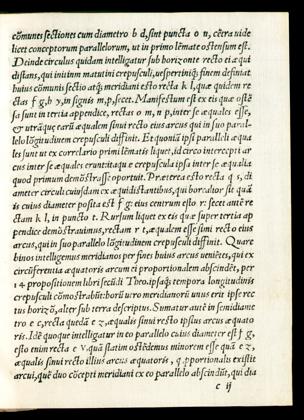 cõmunes sectiones cum diametro b d, sint puncta o n, cẽtra vide
licet conceptorum parallelorum, ut in primo lẽmate ostensum est.
Deinde circulus quidam intelligatur sub horizonte recto ei æqui
distans, qui initium matutini crepusculi, uespertiniq; finem definiat
huius cõmunis sectio atq; meridiani esto recta k l, quæ quidem re
ctas f g, h , in signis m, p, secet. Manifestum est ex eis quæ ostẽ
sa sunt in tertia appendice, rectas o m, n p, inter se æquales esse,
& utráque earũ æqualem sinui recto eius arcus qui in suo paral-
lelo lõgitudinem crepusculi diffinit. Et quoniã ipsi paralleli æqua
les sunt ut ex correlario primi lẽmatis liquet, id circo intercepti ar
cus inter se æquales erunt itaque crepuscula ipsa inter se æqualia
quod primum demõstrasse oportuit. Præterea esto recta q s, di
ameter circuli cuiusdam ex æquidistantibus, qui borealior sit quã
is cuius diameter posita est f g: eius centrum esto r: secet autẽ re
ctam k l, in puncto t. Rursum liquet ex eis quæ super tertia ap
pendice demõstrauimus, rectam r t, æqualem esse sinui recto eius
arcus, qui in suo parallelo lõgitudinem crepusculi diffinit. Quare
binos intelligemus meridianos per fines huius arcus ueniẽtes, qui ex
circũferentia æquatoris arcum ei proportionalem abscindẽt, per
14 propositionem libri secũdi Theo. ipsaq; tempora longitudinis
crepusculi cõmonstrabũt: horũ uero meridianorũ unus erit ipse rec
tus horizõ, alter sub terra descriptus. Sumatur autẽ in semidiame
tro e c, recta quedã e z, æqualis sinui recto ipsius arcus æquato
ris. Idẽ quoque intelligatur in eo parallelo cuius diameter est f g,
esto enim recta e v. quã statim ostẽdemus minorem esse quã e z,
æqualis sinui recto illius arcus æquatoris, q proportionalis existit
arcui, quẽ duo cõcepti meridiani ex eo parallelo abscindũt, qui dia
c ij